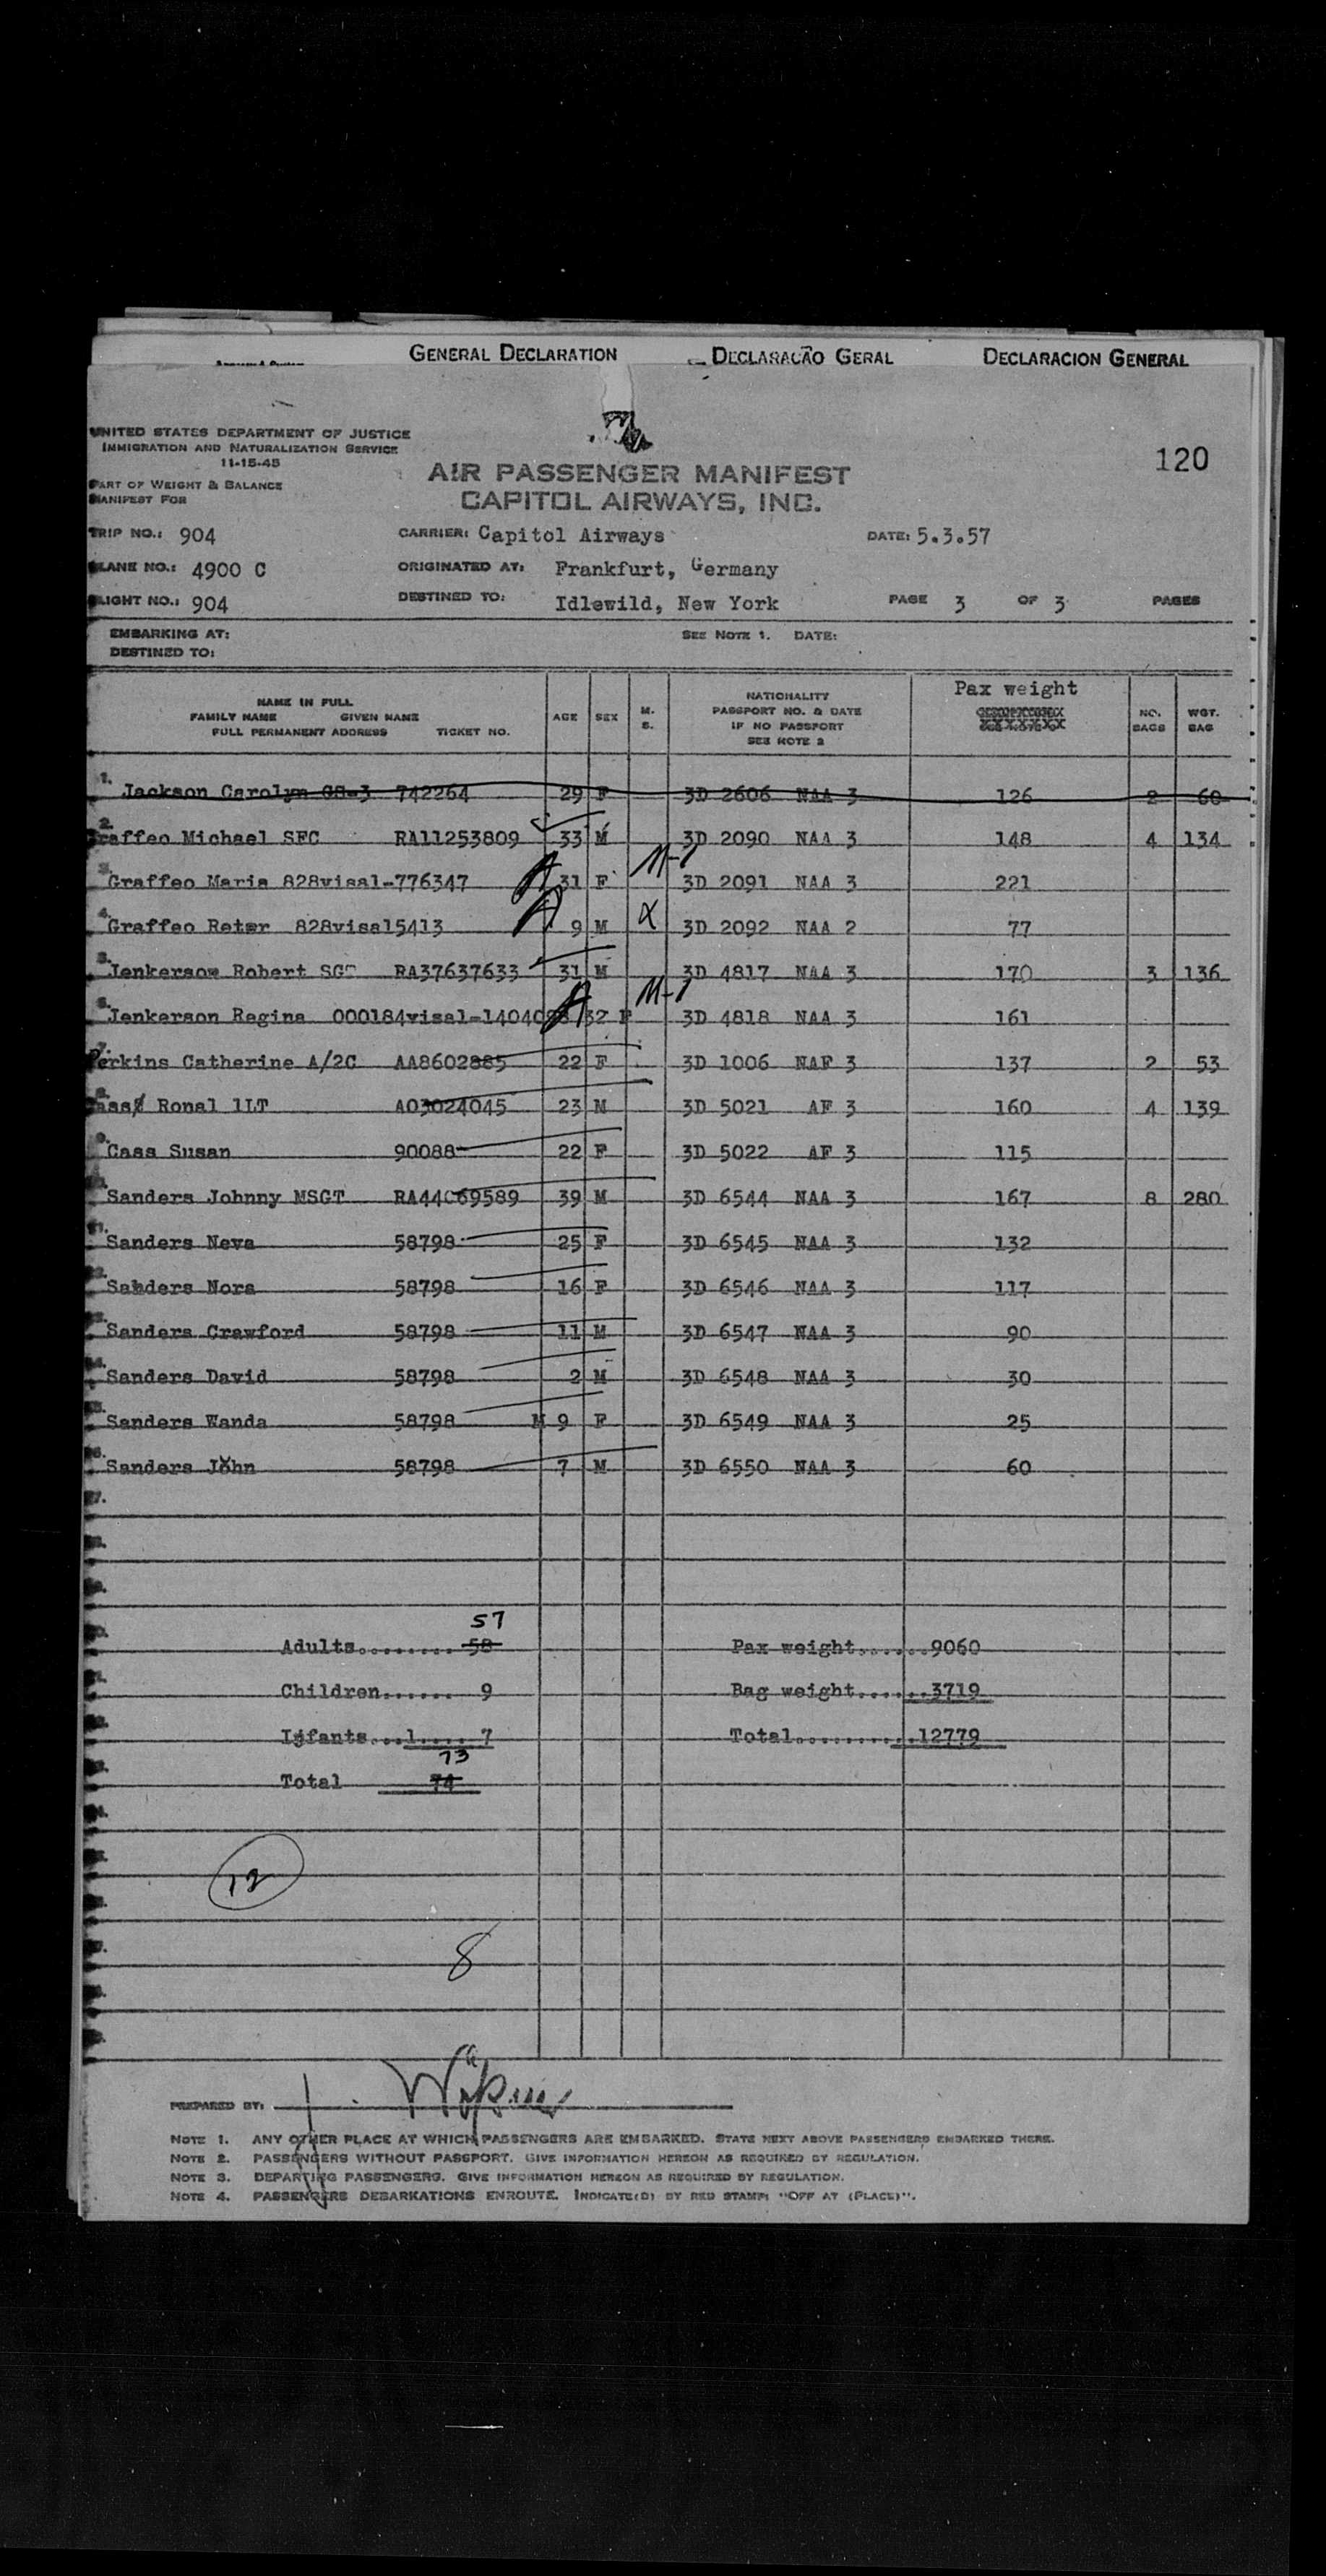 GENERAL DECLARATION DECLARAÇÃO GERAL DECLARACION GENERAL
UNITED STATES DEPARTMENT OF JUSTICE
IMMIGRATION AND NATURALIZATION SERVICE
11-15-45
120
PART OF WEIGHT & BALANCE
MANIFEST FOR
AIR PASSENGER MANIFEST
CAPITOL AIRWAYS, INC.
TRIP NO.: 904 CARRIER: Capitol Airways DATE: 5.3.57
PLANE NO.: 4900 C ORIGINATED AT: Frankfurt, Germany
FLIGHT NO.: 904 DESTINED TO: Idlewild, New York PAGE 3 OF 3 PAGES
EMBARKING AT: SEE NOTE 1. DATE:
DESTINED TO:
Pax weight
NAME IN FULL
FAMILY NAME GIVEN NAME
FULL PERMANENT ADDRESS TICKET NO.
AGE SEX M. S.
NATIONALITY
PASSPORT NO. & DATE
IF NO PASSPORT
SEE NOTE 2
NO. BAGS WGT. BAG
1. Jackson Carolyn GS-3 742264 29 F 3D 2606 NAA 3 126 2 60
2. Graffeo Michael SFC RA11253809 33 M 3D 2090 NAA 3 148 4 134
3. Graffeo Maria 828visal-776347 A 31 F M-1 3D 2091 NAA 3 221
4. Graffeo Reter 828visal5413 A 9 M X 3D 2092 NAA 2 77
5. Jenkerson Robert SGT RA37637633 31 M 3D 4817 NAA 3 170 3 136
6. Jenkerson Regina 000184visal-140409 A 32 F M-1 3D 4818 NAA 3 161
7. Perkins Catherine A/2C AA8602885 22 F 3D 1006 NAF 3 137 2 53
8. Cass Ronal 1LT AO3024045 23 M 3D 5021 AF 3 160 4 139
9. Cass Susan 90088 22 F 3D 5022 AF 3 115
10. Sanders Johnny MSGT RA44069589 39 M 3D 6544 NAA 3 167 8 280
11. Sanders Neva 58798 25 F 3D 6545 NAA 3 132
12. Sanders Nora 58798 16 F 3D 6546 NAA 3 117
13. Sanders Crawford 58798 11 M 3D 6547 NAA 3 90
14. Sanders David 58798 2 M 3D 6548 NAA 3 30
15. Sanders Wanda 58798 M 9 F 3D 6549 NAA 3 25
16. Sanders John 58798 7 M 3D 6550 NAA 3 60
17.
57
Adults......... 58 Pax weight......9060
Children....... 9 Bag weight......3719
Infants...1.... 7 Total...........12779
73
Total 74
12
8
PREPARED BY:
NOTE 1. ANY OTHER PLACE AT WHICH PASSENGERS ARE EMBARKED. STATE NEXT ABOVE PASSENGERS EMBARKED THERE.
NOTE 2. PASSENGERS WITHOUT PASSPORT. GIVE INFORMATION HEREON AS REQUIRED BY REGULATION.
NOTE 3. DEPARTING PASSENGERS. GIVE INFORMATION HEREON AS REQUIRED BY REGULATION.
NOTE 4. PASSENGERS DEBARKATIONS ENROUTE. INDICATE(D) BY RED STAMP: "OFF AT (PLACE)".